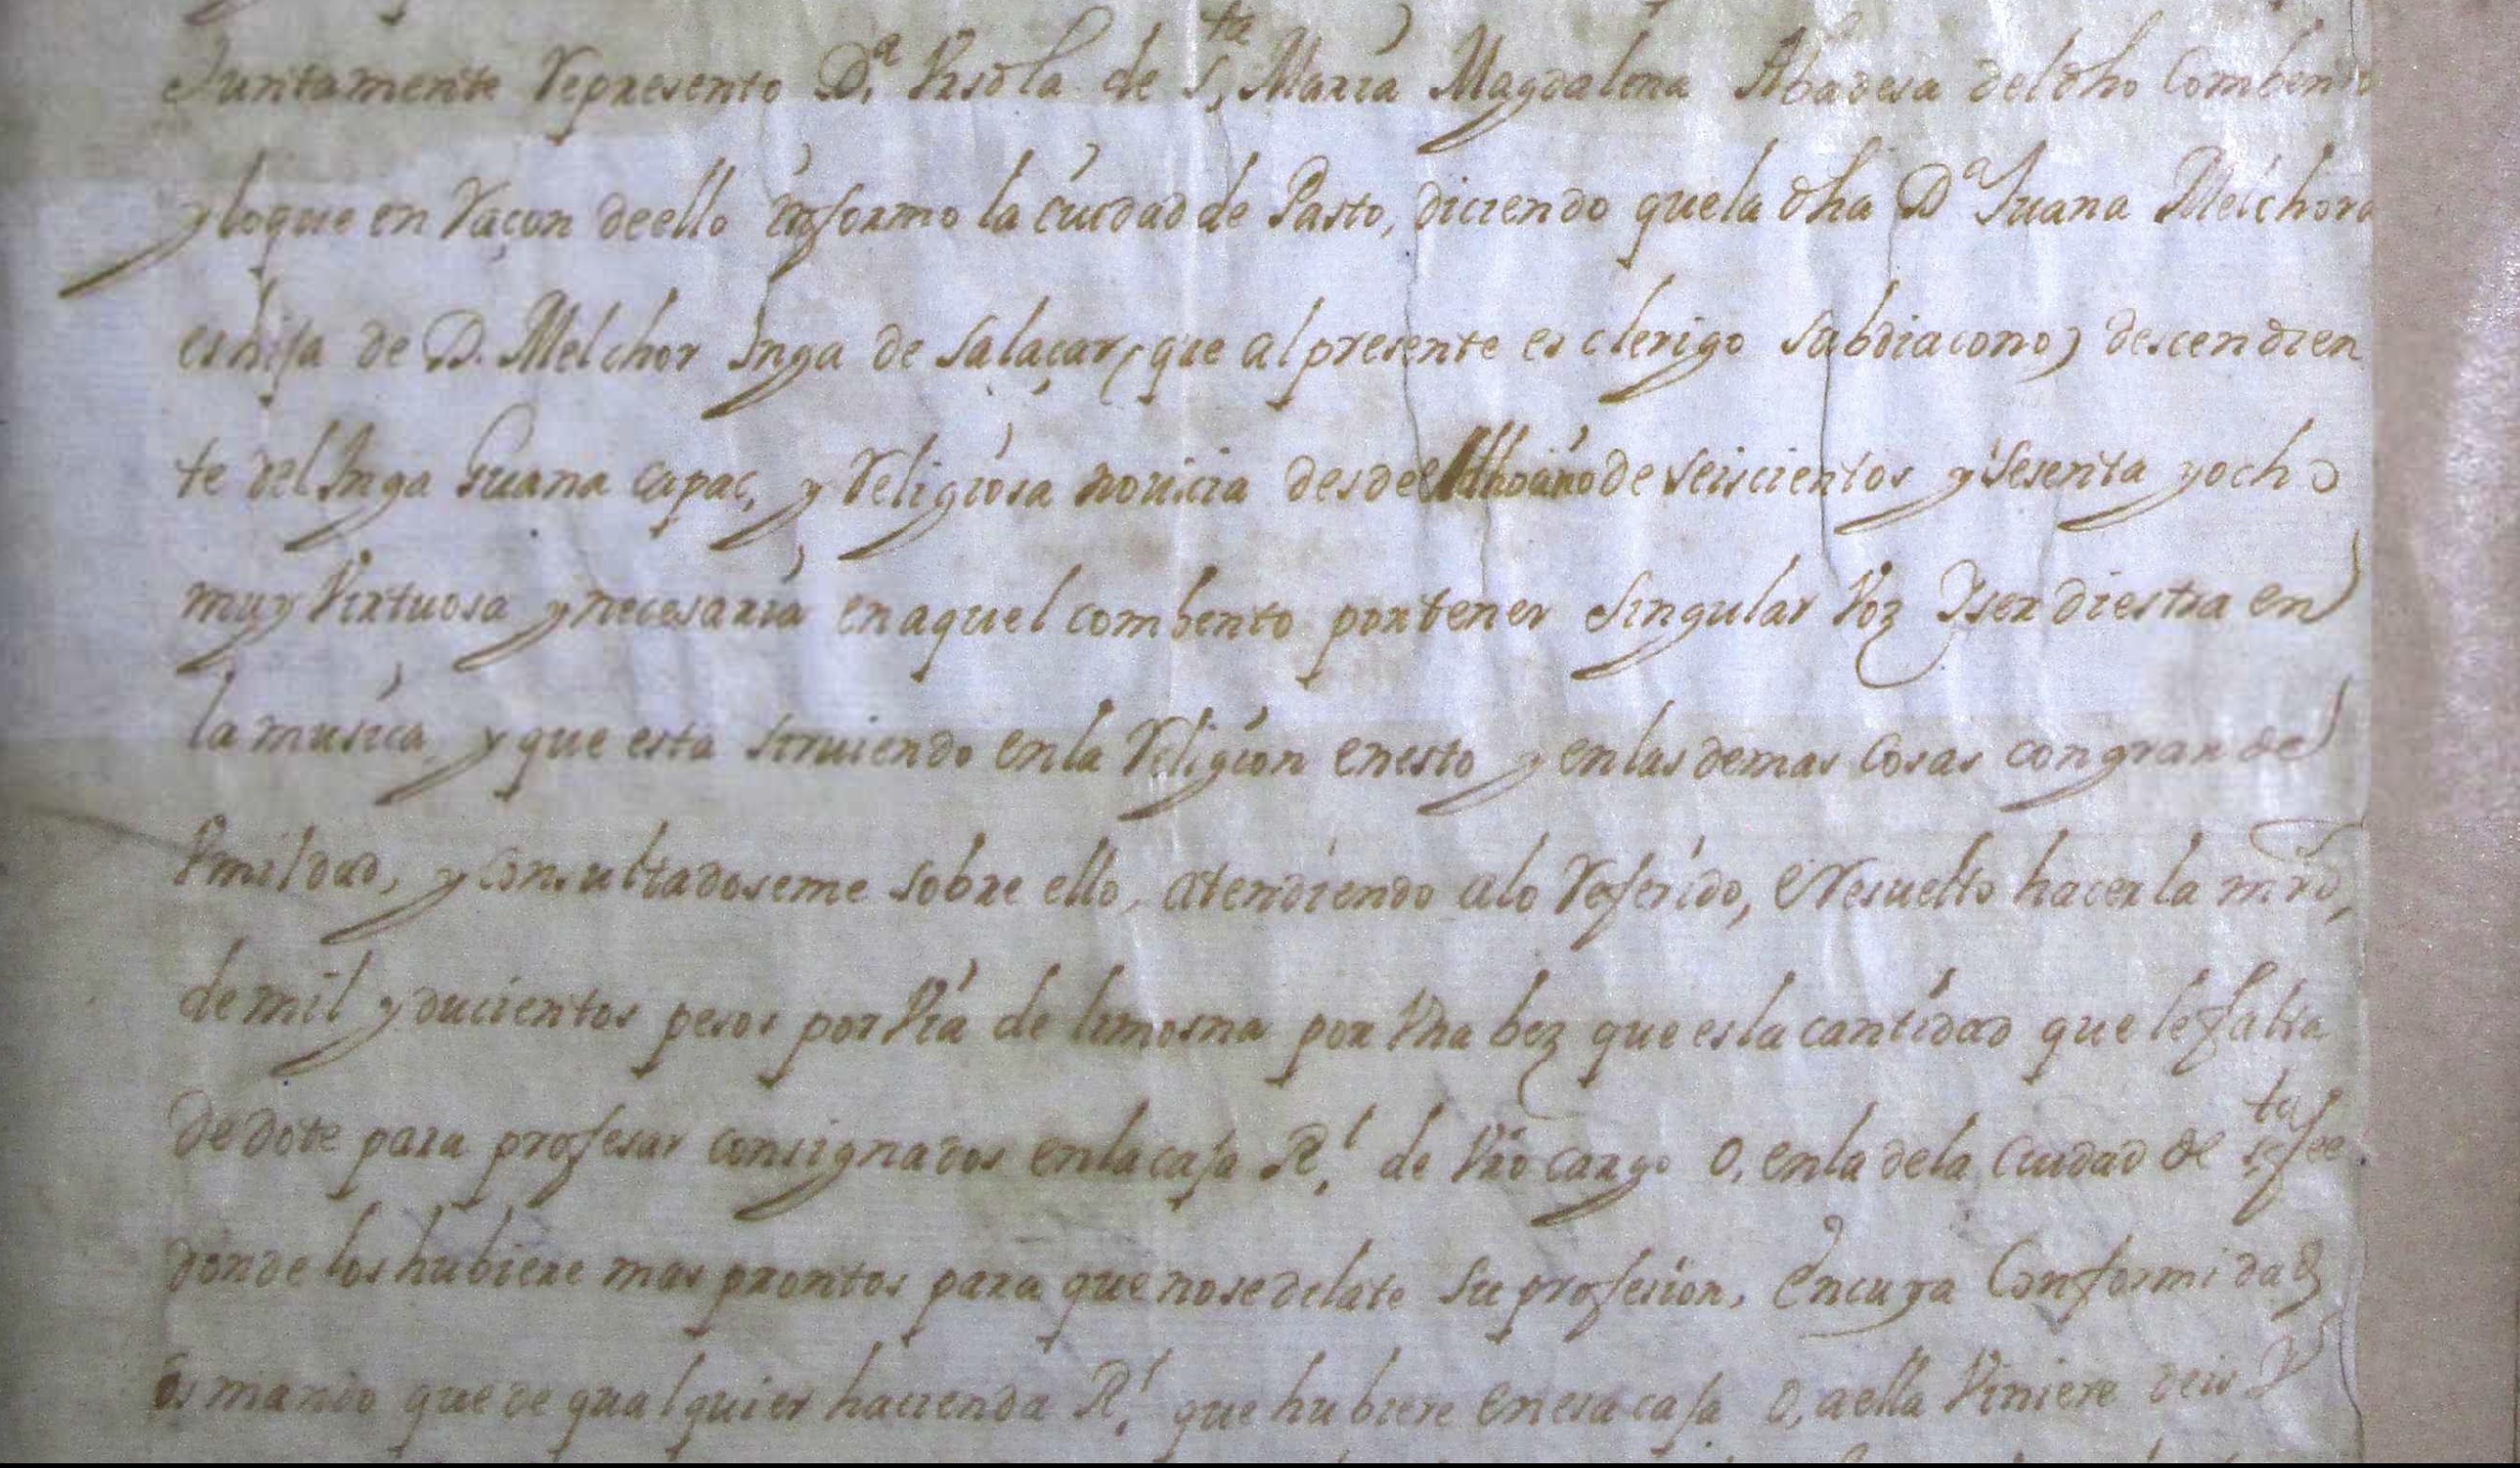 Juntamente Represento D.ª Vrsola de S,ta Maria Magdalena Abadesa del dho Combento
y loque en Raçon deello informo la ciudad de Pasto, diciendo quela dha Dª Juana Melchora
es hija de D. Melchor Inga de Salaçar, (que al presente es clerigo subdiacono) descendien
te del Inga Guana capac, y Religiosa nouicia desde el dho año de seiscientos y sesenta y ocho
muy Virtuosa y necesaria en aquel combento por tener singular Voz Y ser diestra en
la musica, y que esta siruiendo en la Religion enesto y en las demas cosas con grande
Vmildad, y consultadoseme sobre ello, atendiendo alo Referido, e Resuelto hacerla mrd,
de mil y ducientos pesos por Via de limosna por Vna bez que es la cantidad que le falta
de dote para profesar consignados en la caja R,l de Vro cargo O, en la dela Ciudad de s,ta fee
donde los hubiere mas prontos para que no se delate su profesion, En cuya Conformidad
os mando que de qualquier hacienda R,l que hubiere en esa caja O, a ella Viniere deis Y